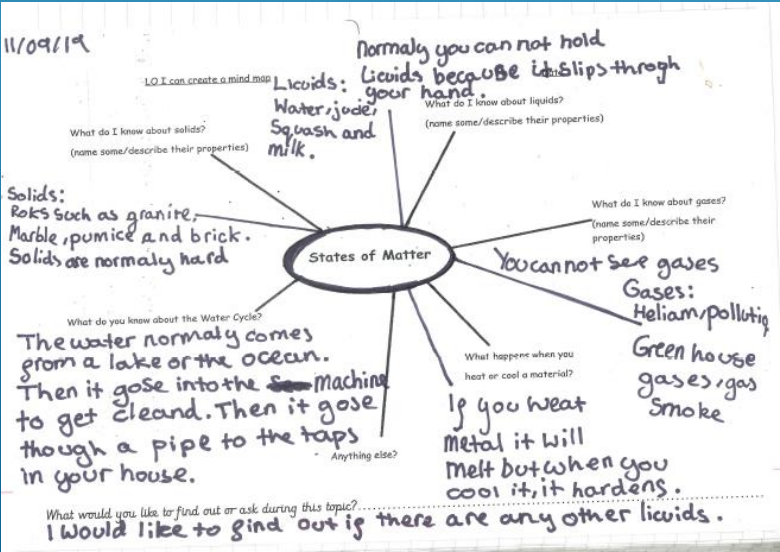 11/09/19
LO I can create a mind map
Normaly you can not hold
Licuids because it slips throgh
your hand.
Licuids:
Water, juice,
Squash and
milk.
What do I know about liquids?
(name some/describe their properties)
What do I know about solids?
(name some/describe their properties)
Solids:
Roks such as granite,
Marble, pumice and brick.
Solids are normaly hard
States of Matter
What do I know about gases?
(name some/describe their
properties)
You can not see gases
Gases:
Heliam, pollutio
Green house
gases, gas
Smoke
What do you know about the Water Cycle?
The water normaly comes
from a lake or the ocean.
Then it gose into the machine
to get cleand. Then it gose
though a pipe to the taps
in your house.
Anything else?
What happens when you
heat or cool a material?
If you heat
metal it will
melt but when you
cool it, it hardens.
What would you like to find out or ask during this topic?
I would like to find out if there are any other licuids.